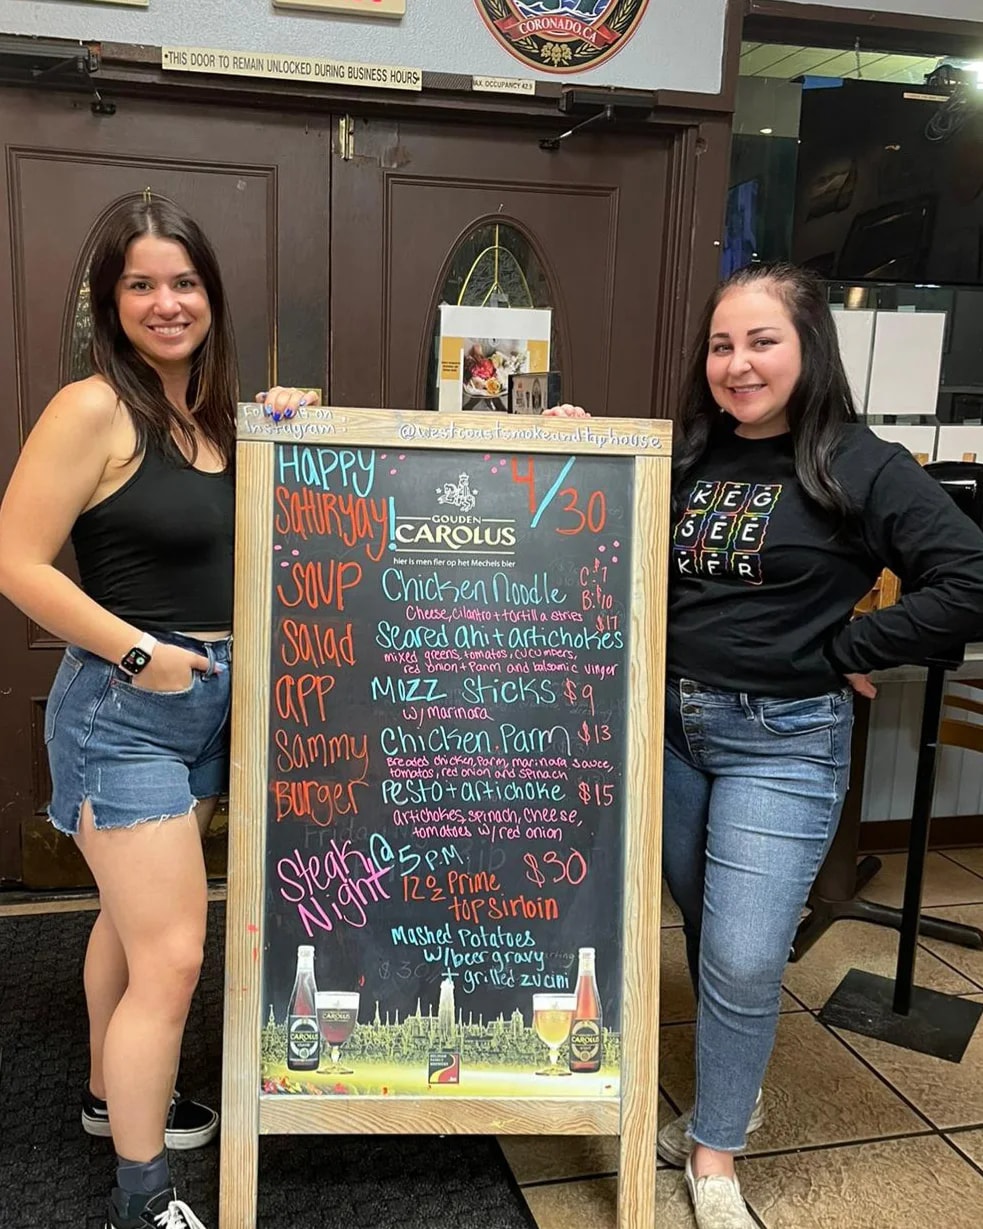 CORONADO, CA
•THIS DOOR TO REMAIN UNLOCKED DURING BUSINESS HOURS•
MAX. OCCUPANCY 429
Follow us on
Instagram:
@westcoastsmokeandtaphouse
HAPPY
SATURYAY!
4/30
GOUDEN
CAROLUS
hier is men fier op het Mechels bier
SOUP Chicken Noodle C: $7
B: $10
Cheese, cilantro + tortilla strips
Salad Seared ahi + artichokes $17
mixed greens, tomatos, cucumbers,
red onion + Parm and balsamic vinger
APP Mozz Sticks $9
w/marinara
Sammy Chicken Parm $13
Breaded chicken, parm, marinara sauce,
tomatos, red onion and spinach
Burger Pesto + artichoke $15
artichokes, spinach, cheese,
tomatoes w/ red onion
Steak Night @ 5 P.M $30
12oz Prime
top sirloin
Mashed Potatoes
w/beer gravy
+ grilled zucini
CAROLUS
CAROLUS
CAROLUS
KEG
SEE
KER